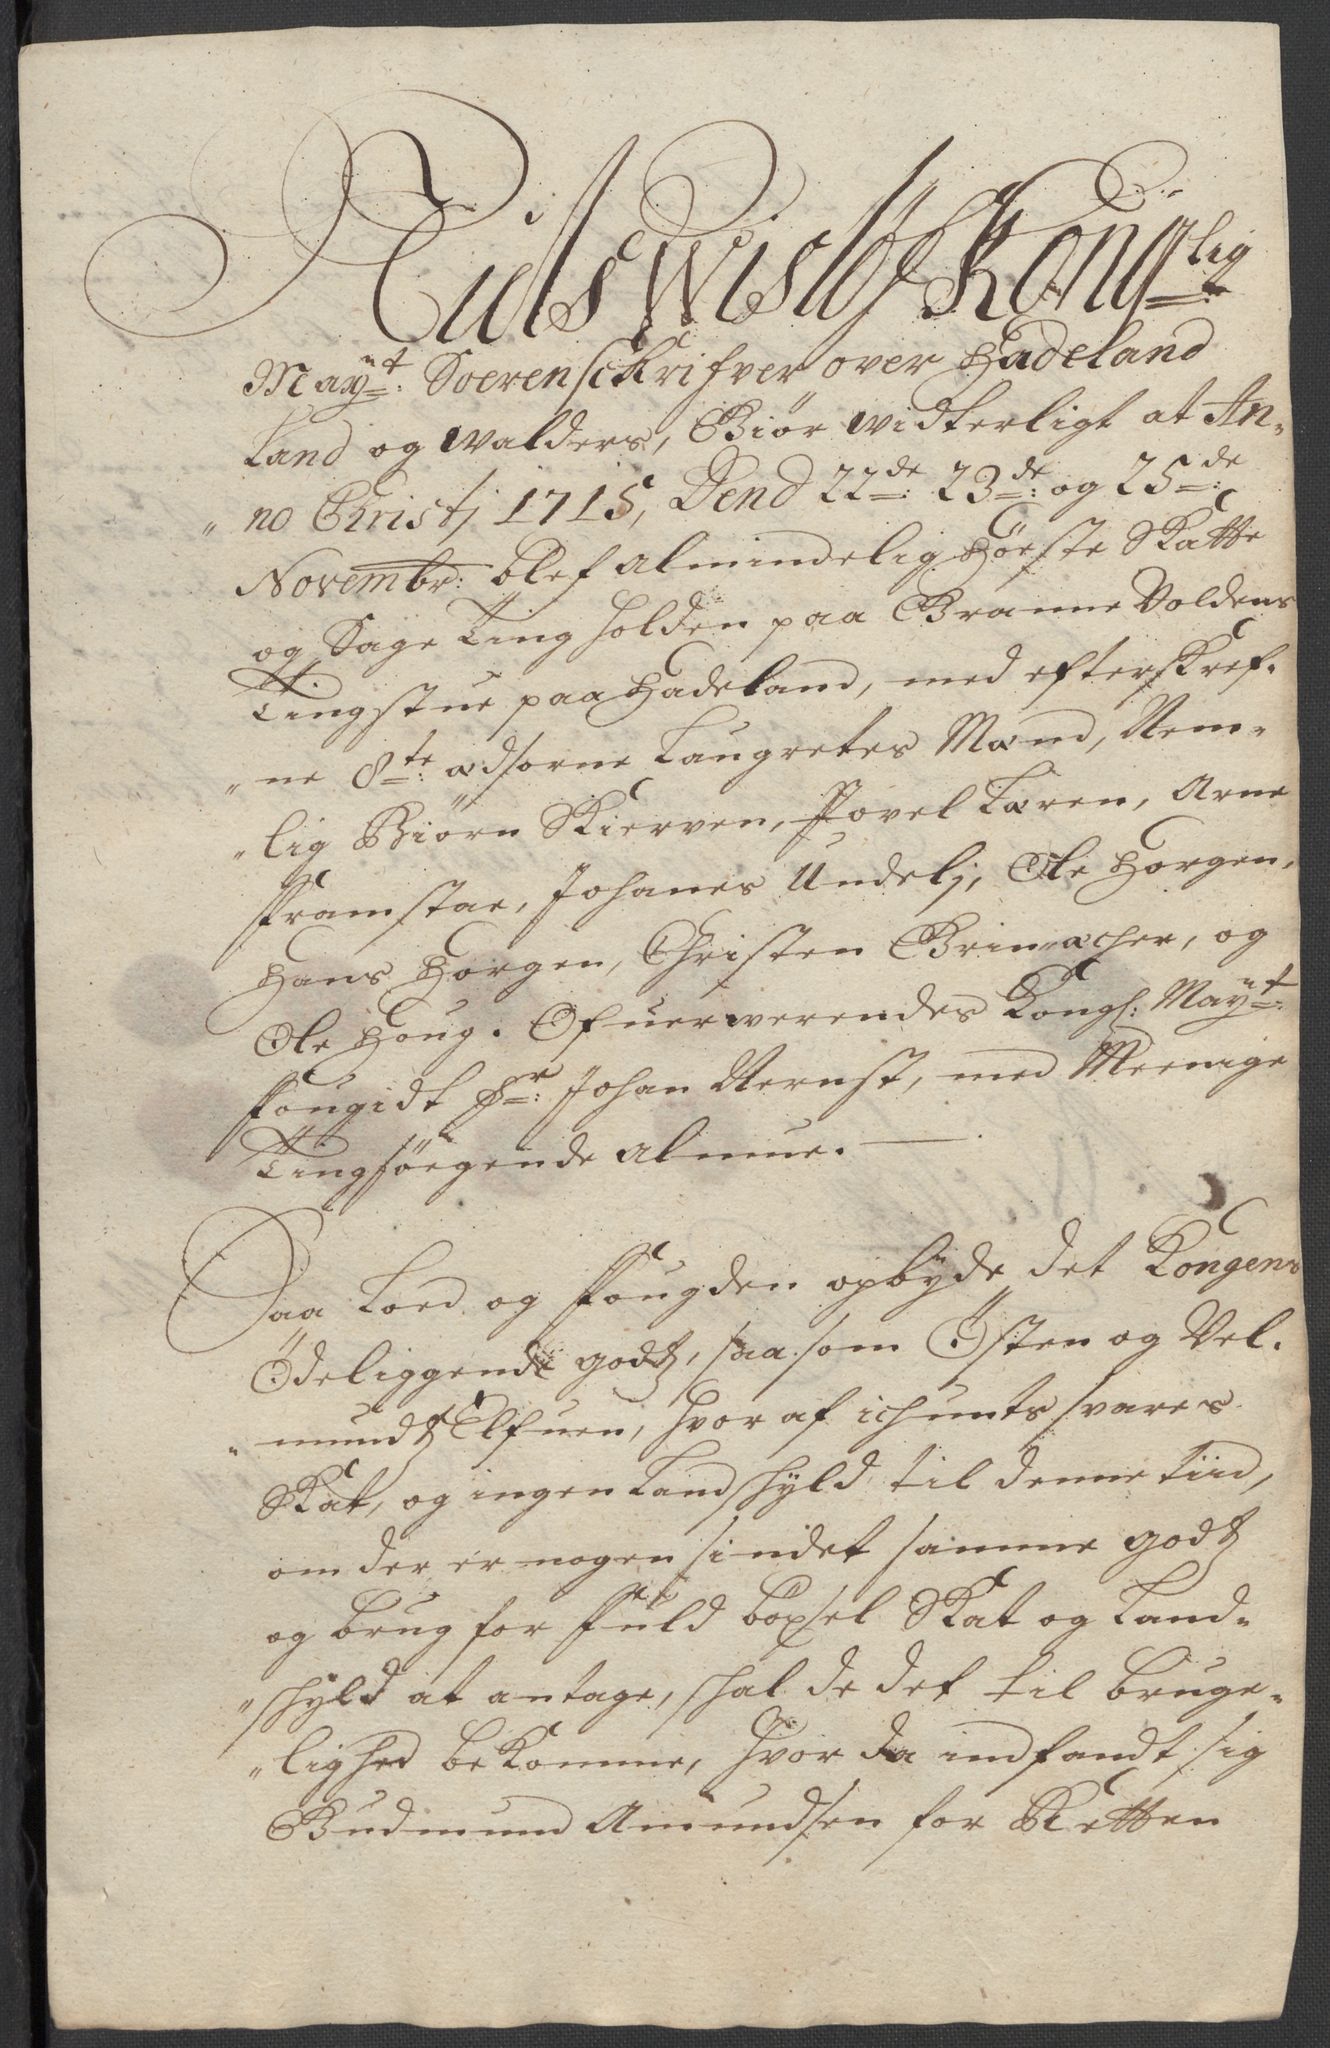 Niels Wisløf Kong=lig
May:tt Soerenschrifver over Hadeland
Land og walders, Giør widterligt at An-
no Christj 1715, Dend 22de: 23de: og 25de:
Novembr: blef almindelig Høste Skatte
og Sage Ting holden paa Granne Voldens
Tingstue paa Hadeland, med efterskref-
ne 8te: ædsorne Laugrettes Mænd, Nem-
lig Biørn Skierven, Povel Læren, Arne
Framstae, Johanes Undelj, Ole Horgen,
Hans Horgen, Christen Grinacher, og
Ole Houg. Ofuerwerendes Kongl: May:tt
Fougidt Hr: Johan Aernst, med Meenige
Tingsøegende almue.
Daa Loed og Fougden opbyde det Kongens
Ødeliggende godtz, saa som Østen og Vel-
mundtz Elfuen, hvor af ichunts svares
Skat, og ingen Landskyld til denne tiid,
om der er nogen sindet samme godtz
og brug for fuld böxsel Skat og Land-
skyld at antage, skal de det til bruge-
lighed bekomme, hvor da indfandt sig
Gudmund Amundsen for Retten